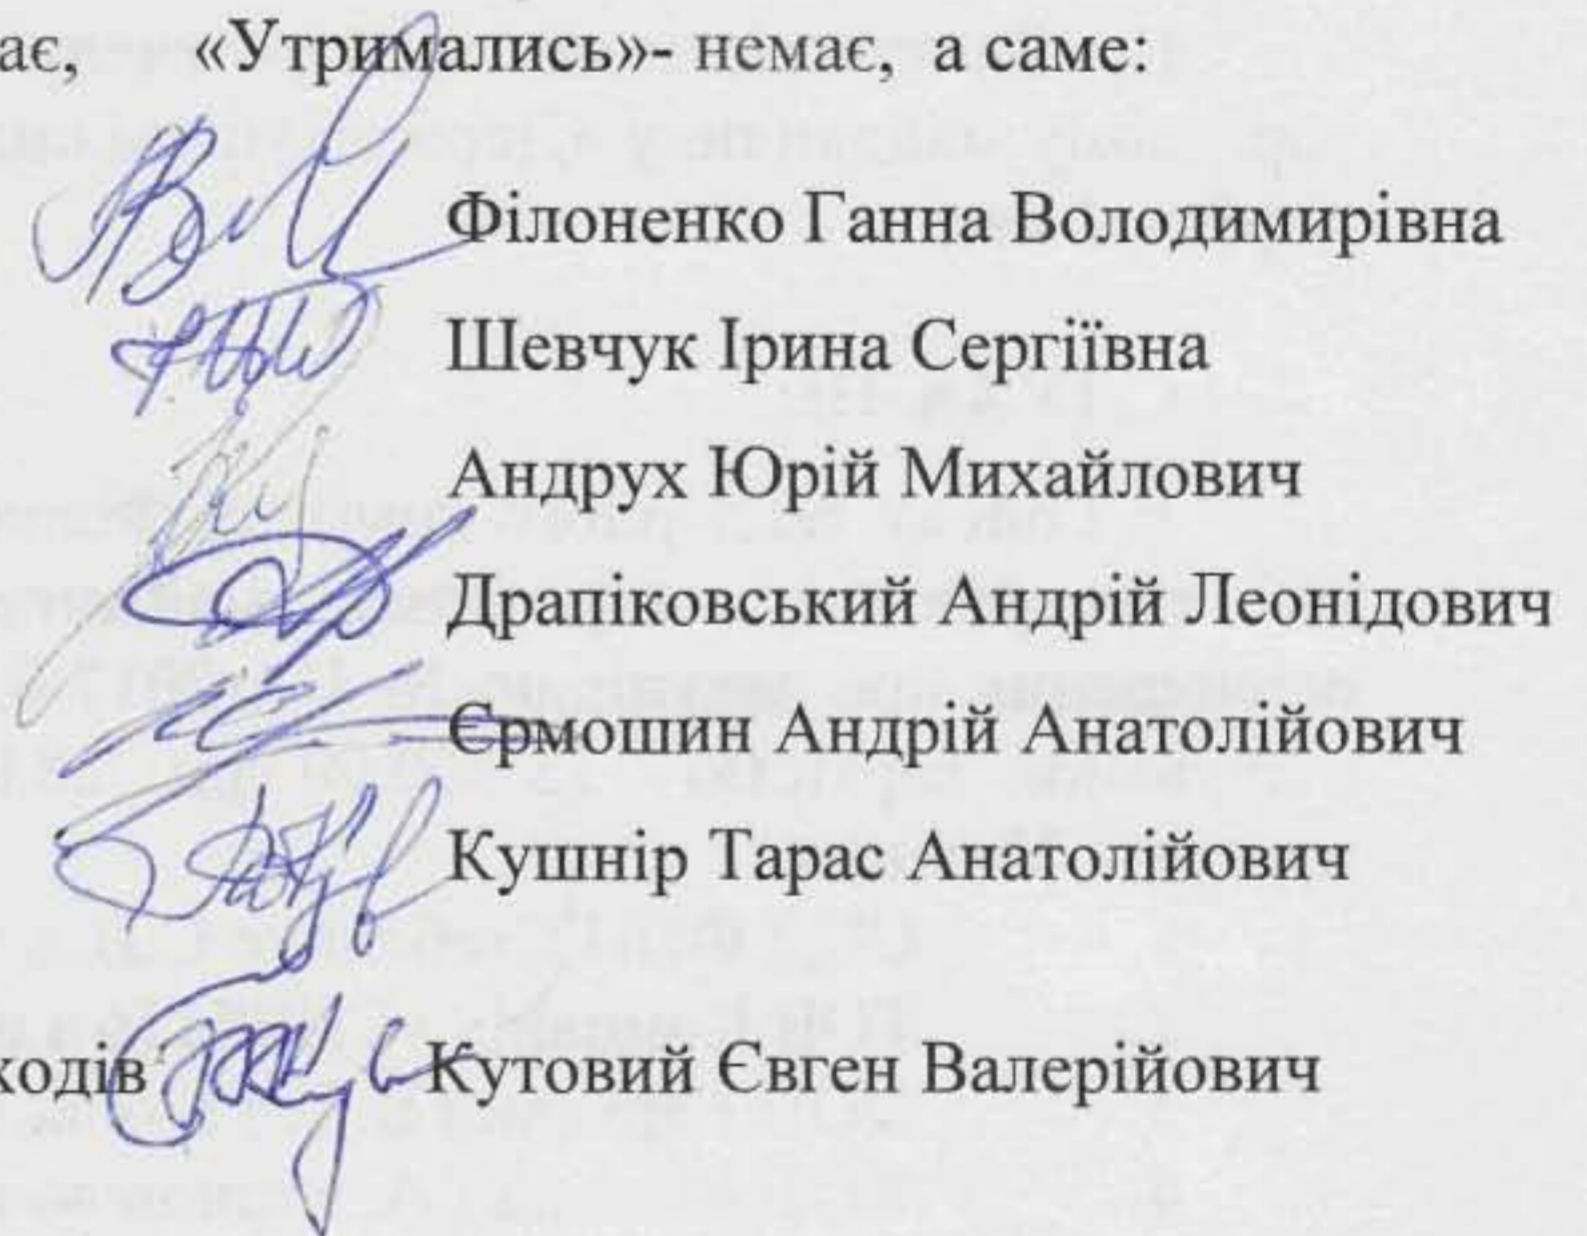 ає, «Утримались»- немає, а саме:
Філоненко Ганна Володимирівна
Шевчук Ірина Сергіївна
Андрух Юрій Михайлович
Драпіковський Андрій Леонідович
Єрмошин Андрій Анатолійович
Кушнір Тарас Анатолійович
ходів Кутовий Євген Валерійович